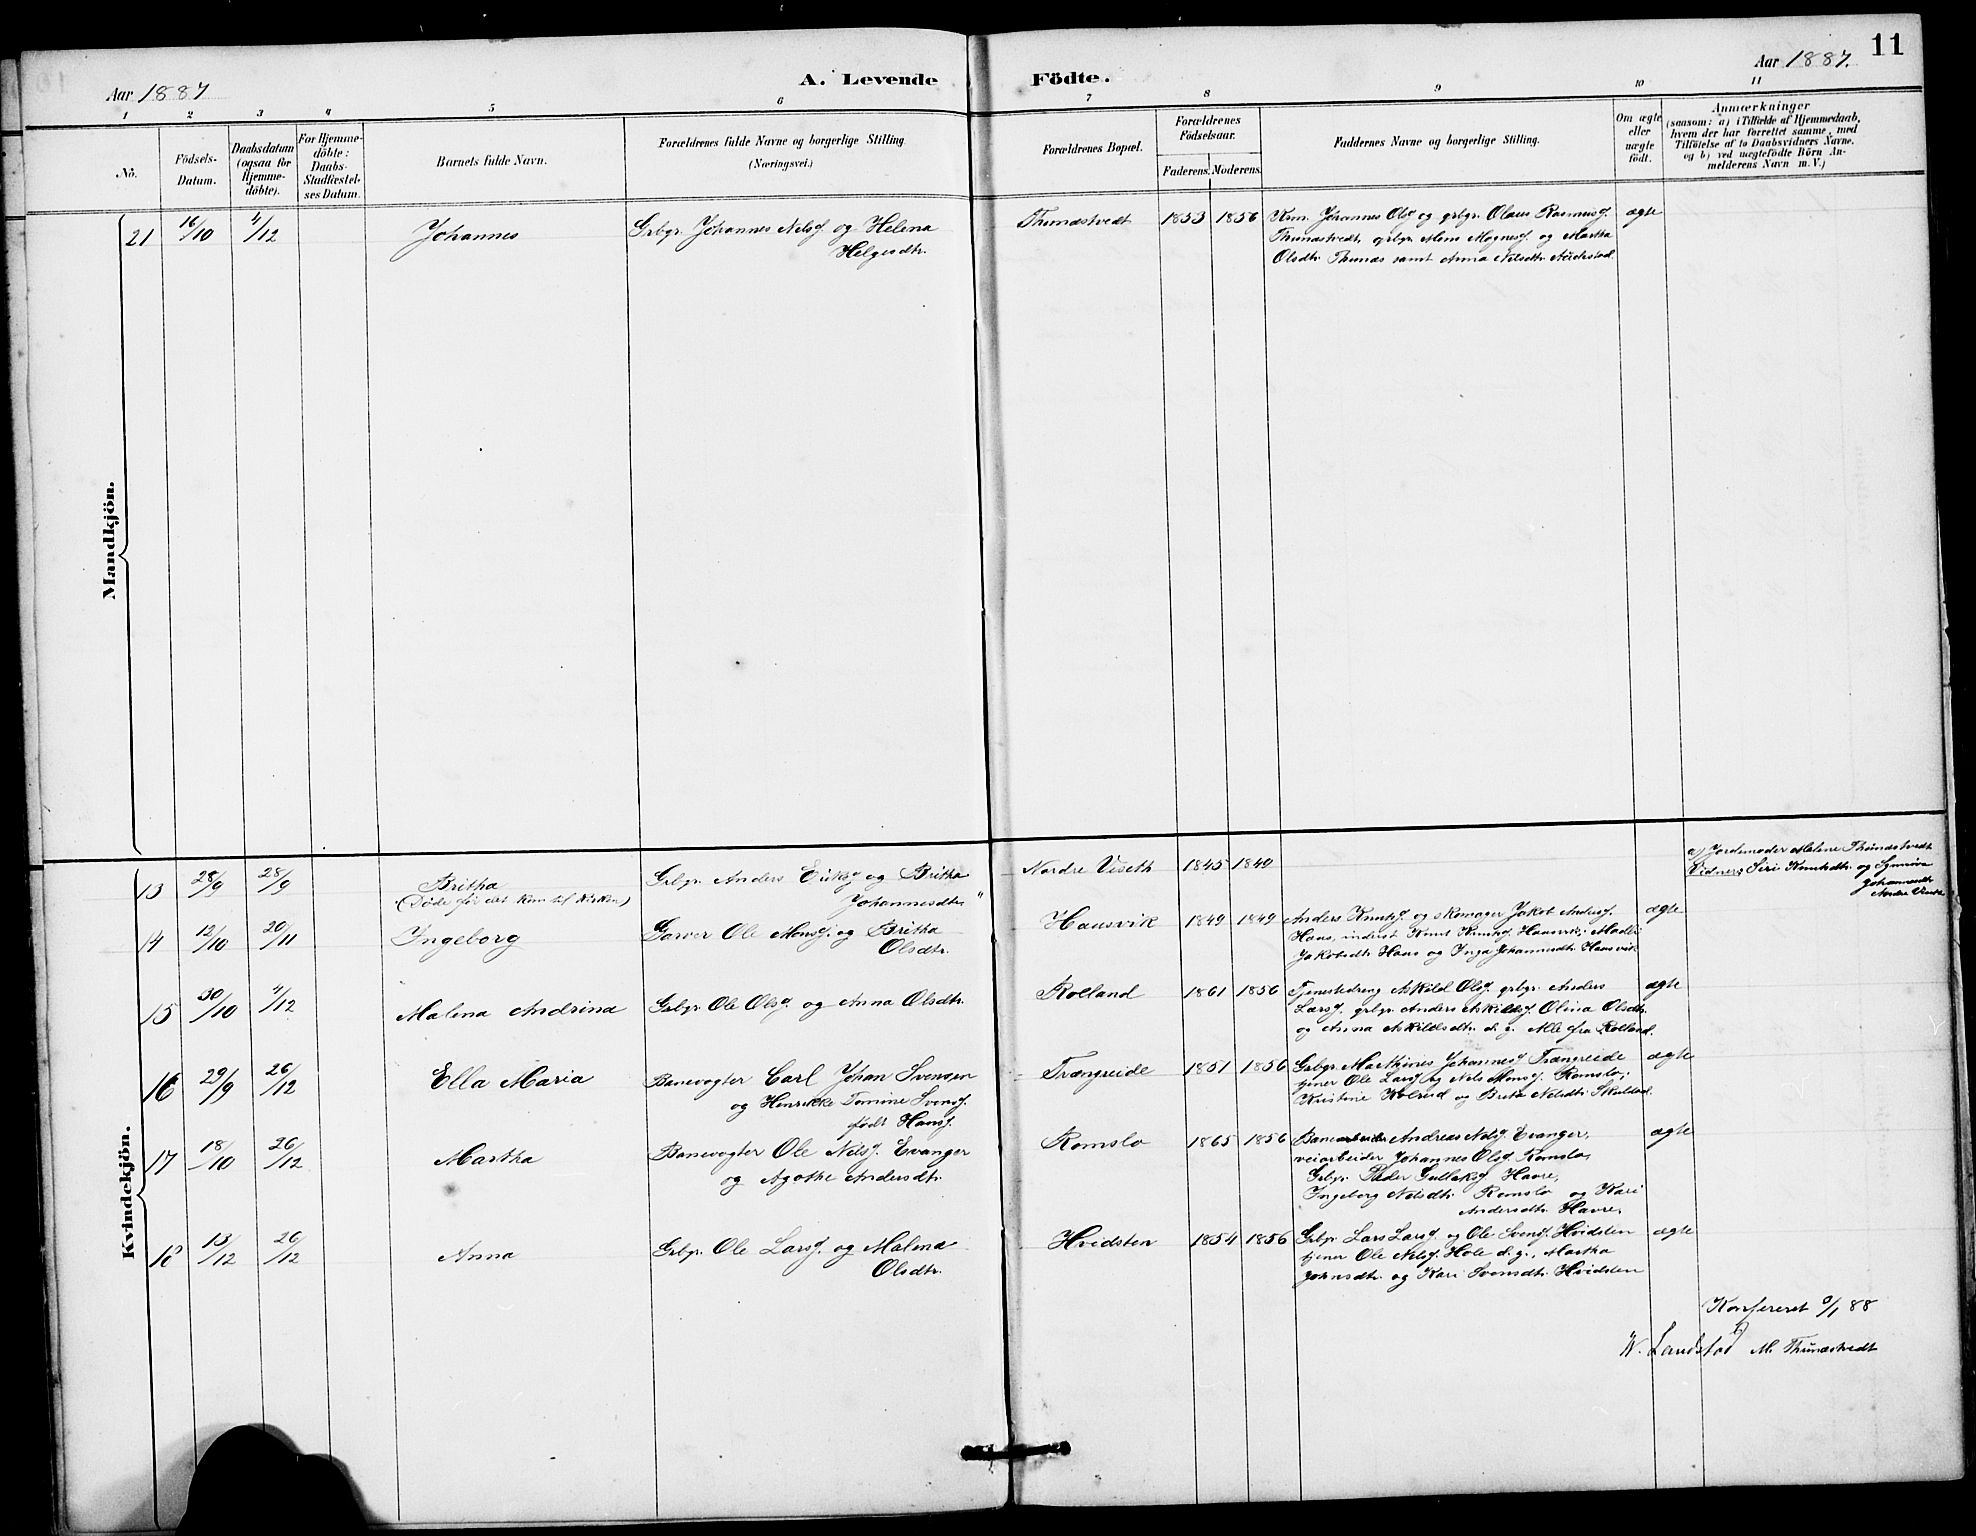 11
Aar 1887
A. Levende Födte.
Aar 1887.
1 2 3 4 5 6 7 8 9 10 11
No.
Födsels-
Datum.
Daabsdatum
(ogsaa for
Hjemme-
döbte).
For Hjemme-
döbte:
Daabs-
Stadfæstel-
ses Datum.
Barnets fulde Navn.
Forældrenes fulde Navne og borgerlige Stilling
(Næringsvei.)
Forældrenes Bopæl.
Forældrenes
Födselsaar.
Faderens. Moderens.
Faddernes Navne og borgerlige Stilling.
Om ægte
eller
uægte
födt.
Anmærkninger
(saasom: a) i Tilfælde af Hjemmedaab,
hvem der har forrettet samme, med
Tilföielse af to Daabsvidners Navne,
og b) ved uægtefödte Börn An-
melderens Navn m. V.)
Mandkjön.
21 16/10 4/12 Johannes
Grbgr. Johannes Nelsf og Helena
Helgesdtr.
Thunæstvedt 1853 1856
Knn. Johannes Olsf og grbgr. Olaus Rasmusf.
Thunæstvedt, grbgr. Mons Mognesf. og Martha
Olsdtr. Thunæs samt Anna Nelsdtr.
ægte
Kvindekjön.
13 28/9 28/9 Britha
(Döde för det kom til Kirken)
Grbgr. Anders Eriksf og Britha
Johannesdtr.
Nordre Viseth 1845 1849
a) Jordemoder Malene Thunæstvedt
Vidner: Siri Knudsdtr. og Synnöva
Johannesdtr.
Nordre Viseth
14 12/10 20/11 Ingeborg
Garver Ole Monsf. og Britha
Olsdtr.
Hausvik 1849 1849
Anders Knutsf. og skomager Jakob Andersf.
Haus, inderst Knut Knutsf. Hausvik; Madli
Jakobsdtr. Haus og Inga Johannesdtr. Hausvik
ægte
15 30/10 4/12 Malena Andrina
Grbgr. Ole Olsf. og Anna Olsdtr.
Rolland 1861 1856
Tjenestedreng Askild Olsf. grbgr. Anders
Larsf. grbgr. Anders Askildsf. Olina Olsdtr.
og Anna Askildsdtr. d. g. Alle fra Rolland.
ægte
16 29/9 26/12 Ella Maria
Banevogter Carl Johan Svensen
og Henrikke Tomine Svensf.
født Hansf.
Trængreide 1851 1856
Grbgr. Marthines Johannesf Trængreide
tjener Ole Larsf og Nels Monsf. Romslo;
Kristine Kolrud og Brita Nelsdtr. Skulstad.
ægte
17 18/10 26/12 Martha
Banevogter Ole Nelsf. Evanger
og Agothe Andersdtr.
Romslo 1865 1856
Banearbeider Andreas Nelsf. Evanger,
veiarbeider Johannes Olsf. Romslo,
Grbgr. Peder Gullaksf Havre,
Ingeborg Nelsdtr. Romslo og Kari
Andersdtr. Havre,
ægte
18 13/12 26/12 Anna
Grbgr. Ole Larsf. og Malena
Olsdtr.
Hvidsten 1854 1856
Grbgr. Lars Larsf. og Ole Svensf. Hvidsten
tjener Ole Nelsf. Hole d. g., Martha
Johnsdtr. og Kari Svensdtr. Hvidsten
ægte
Konfereret 9/1 88
W. Landstad M. Thunæstvedt